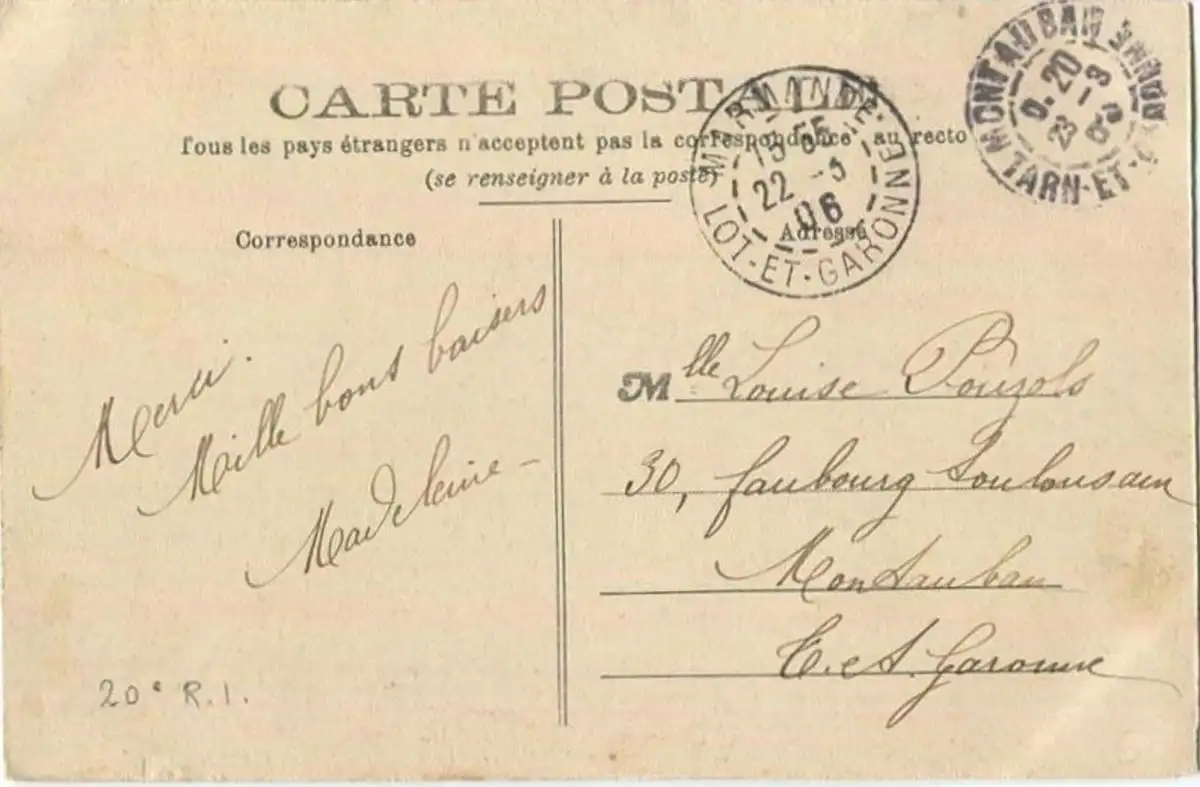 CARTE POSTALE
Tous les pays étrangers n'acceptent pas la correspondance au recto
(se renseigner à la poste)
MARMANDE
15 35
22 - 3
06
LOT-ET-GARONNE
MONTAUBAN
0.20
23 - 3
06
TARN-ET-GARONNE
Correspondance
Merci.
Mille bons baisers
Madeleine -
20e R.I.
Adresse
Mlle Louise Pouzols
30, faubourg Toulousain
Montauban
T. et G. Garonne